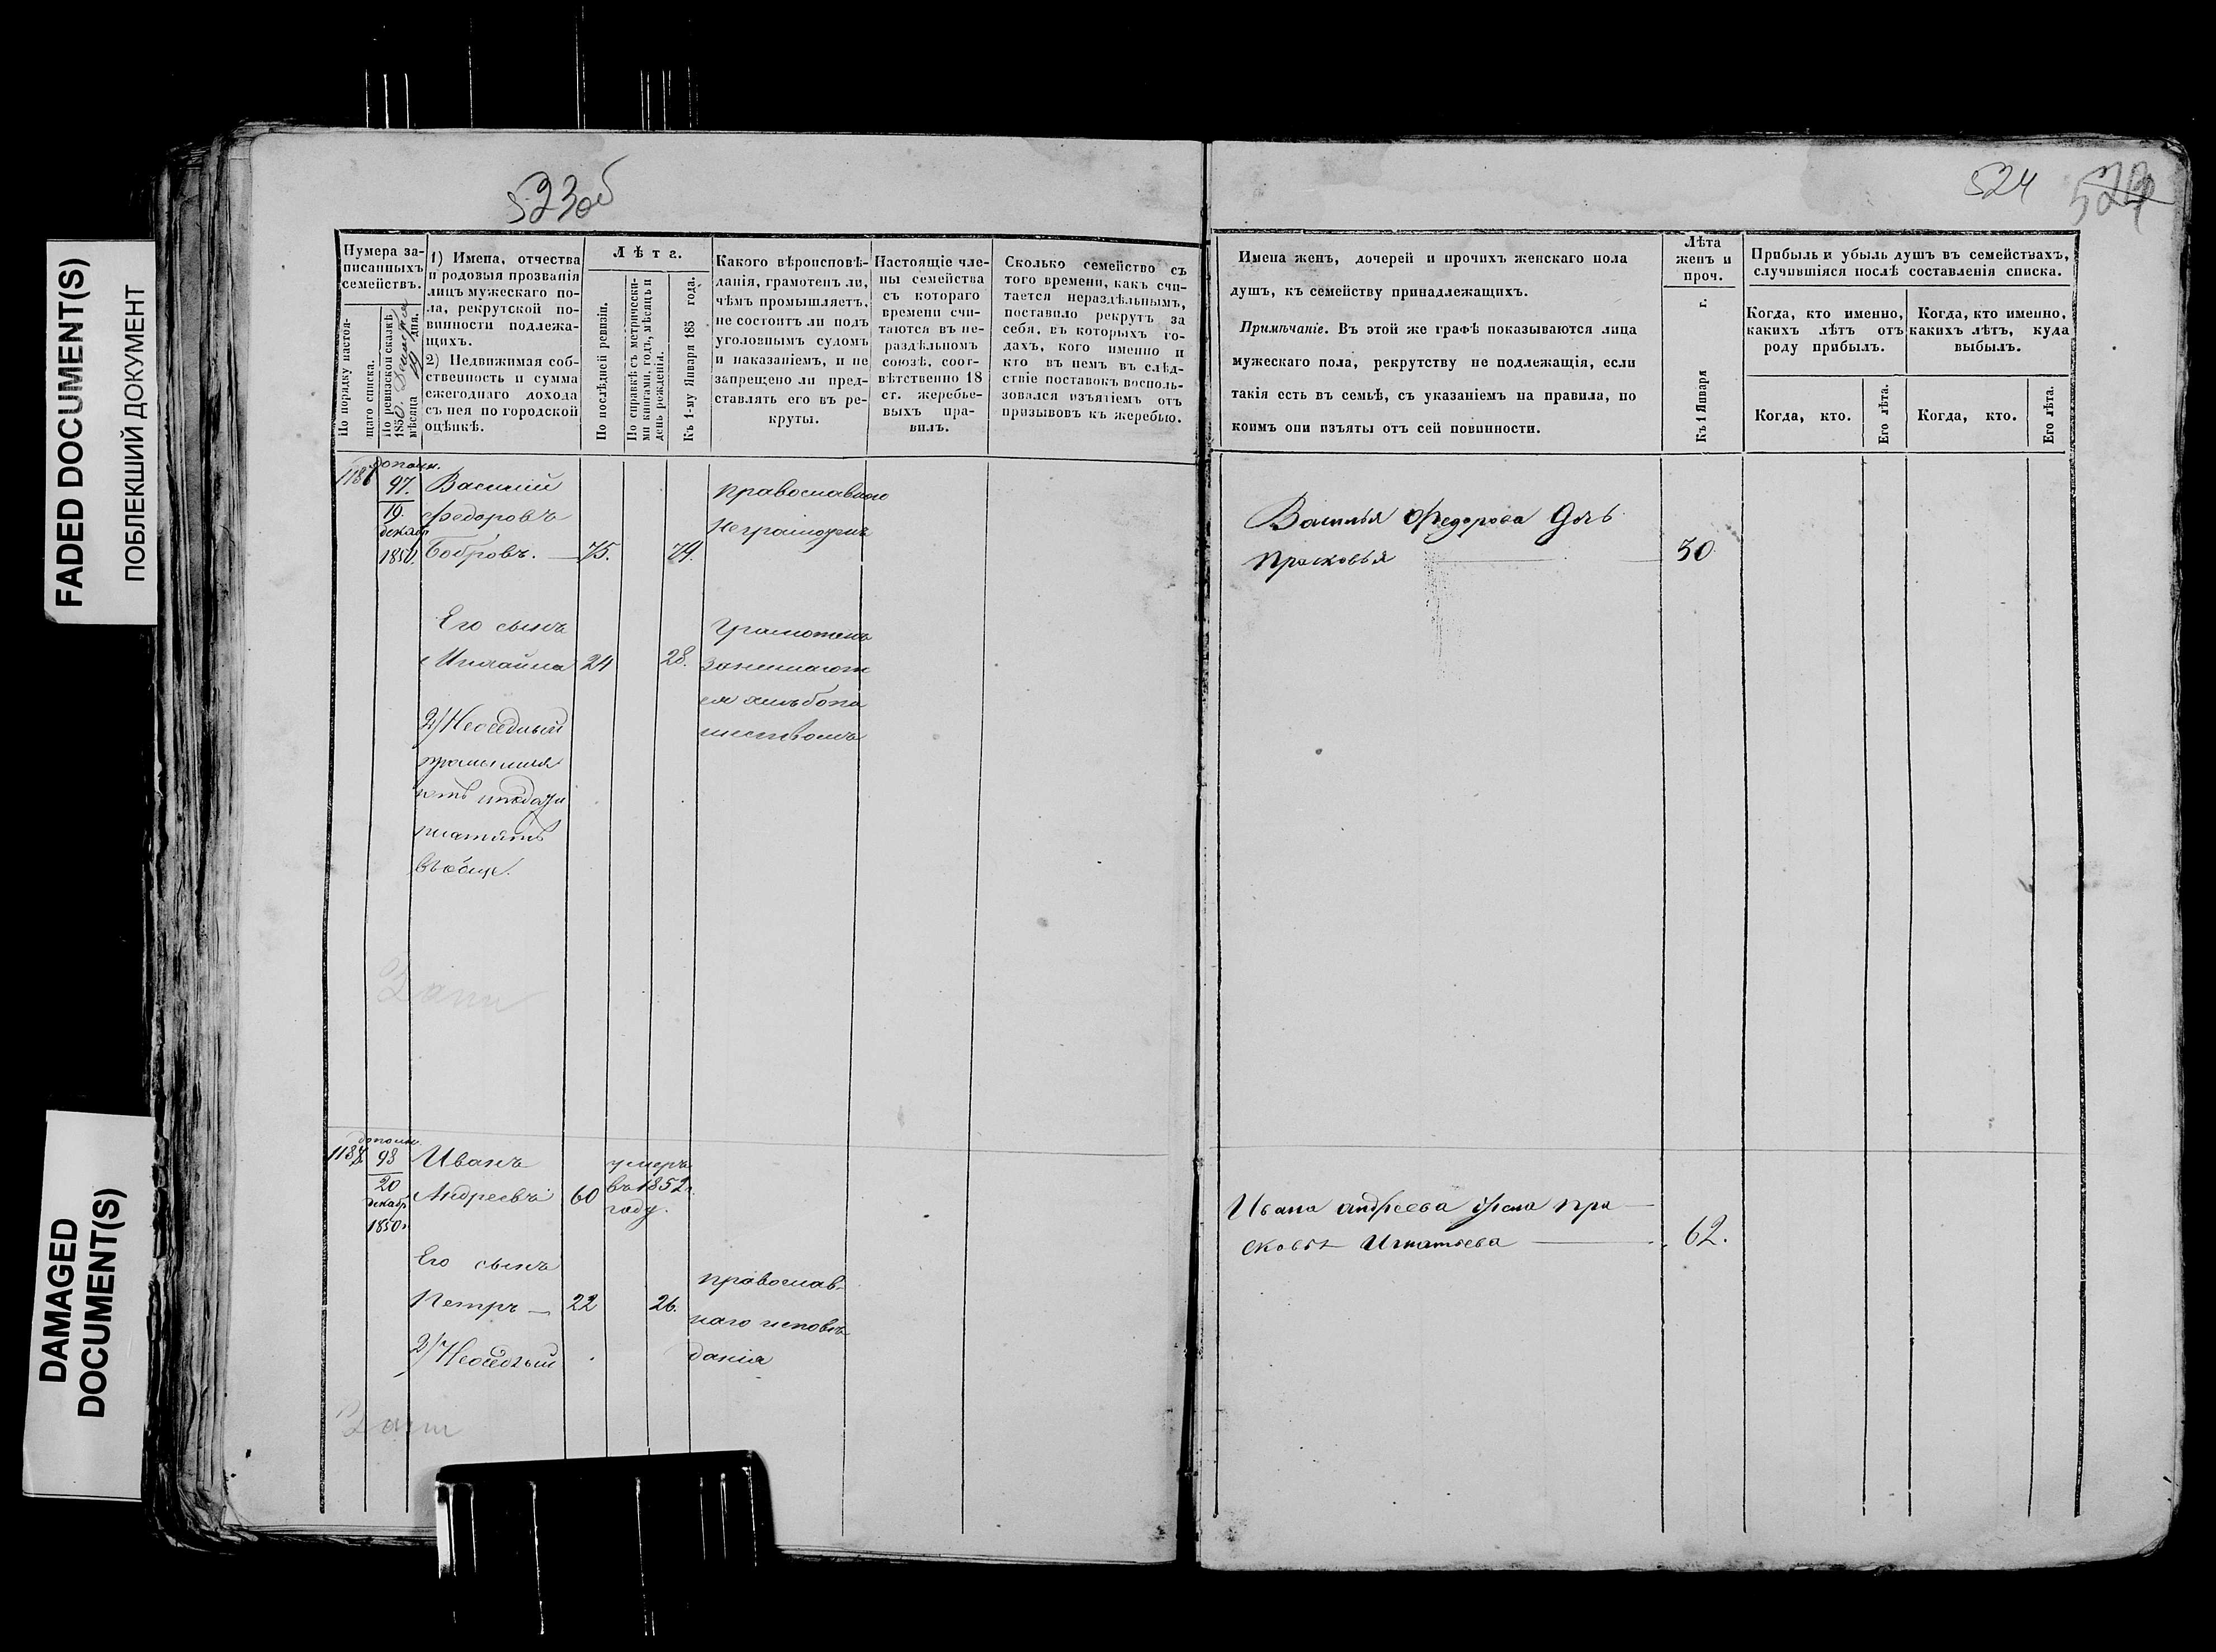 FADED DOCUMENT(S)
ПОБЛЕКШИЙ ДОКУМЕНТ
DAMAGED
DOCUMENT(S)
523об
Нумера за-
писанныхъ
семействъ.
По порядку настоя-
щаго списка.
По ревизской сказкѣ
1850. Декабря
мѣсяца 19 дня.
1) Имена, отчества
и родовыя прозванія
лицъ мужескаго по-
ла, рекрутской по-
винности подлежа-
щихъ.
2) Недвижимая соб-
ственность и сумма
ежегоднаго дохода
съ нея по городской
оцѣнкѣ.
Лѣта.
По послѣдней ревизіи.
По справкѣ съ метрически-
ми книгами, годъ, мѣсяцъ и
день рожденія.
Къ 1-му Января 185 года.
Какого вѣроисповѣ-
данія, грамотенъ ли,
чѣмъ промышляетъ,
не состоитъ ли подъ
уголовнымъ судомъ
и наказаніемъ, и не
запрещено ли пред-
ставлять его въ ре-
круты.
Настоящіе чле-
ны семейства
съ котораго
времени счи-
таются въ не-
раздѣльномъ
союзѣ, соот-
вѣтственно 18
ст. жеребье-
выхъ пра-
вилъ.
Сколько семейство съ
того времени, какъ счи-
тается нераздѣльнымъ,
поставило рекрутъ за
себя, въ которыхъ го-
дахъ, кого именно и
кто въ немъ въ слѣд-
ствіе поставокъ восполь-
зовался изъятіемъ отъ
призывовъ къ жеребью.
дополн.
97. Василій
19. Федоровъ
декабр
1850. Бобровъ. 75. 79.
православнаго
Неграмотенъ
Его сынъ
Михайла 24 28.
Грамотенъ
занимают
ся хлѣбопа
шествомъ
2) Неоседлый
промышля
етъ
платитъ
въобще.
дополн.
98 Иванъ
20 Андреевъ 60
декабр
1850г
умеръ
въ 1852
году.
Его сынъ
Петръ 22 26.
2) Неоседлый
православ-
наго исповѣ
данія
524
Имена женъ, дочерей и прочихъ женскаго пола
душъ, къ семейству принадлежащихъ.
Примѣчаніе. Въ этой же графѣ показываются лица
мужескаго пола, рекрутству не подлежащія, если
такія есть въ семьѣ, съ указаніемъ на правила, по
коимъ они изъяты отъ сей повинности.
Лѣта
женъ и
проч.
Къ 1 Января г.
Прибыль и убыль душъ въ семействахъ,
случившіяся послѣ составленія списка.
Когда, кто именно,
какихъ лѣтъ отъ
роду прибылъ.
Когда, кто именно,
какихъ лѣтъ, куда
выбылъ.
Когда, кто.
Его лѣта.
Когда, кто.
Его лѣта.
Василья Федорова Дочь
Прасковья 50
Ивана Андреева жена Пра
сковья Игнатьева 62.